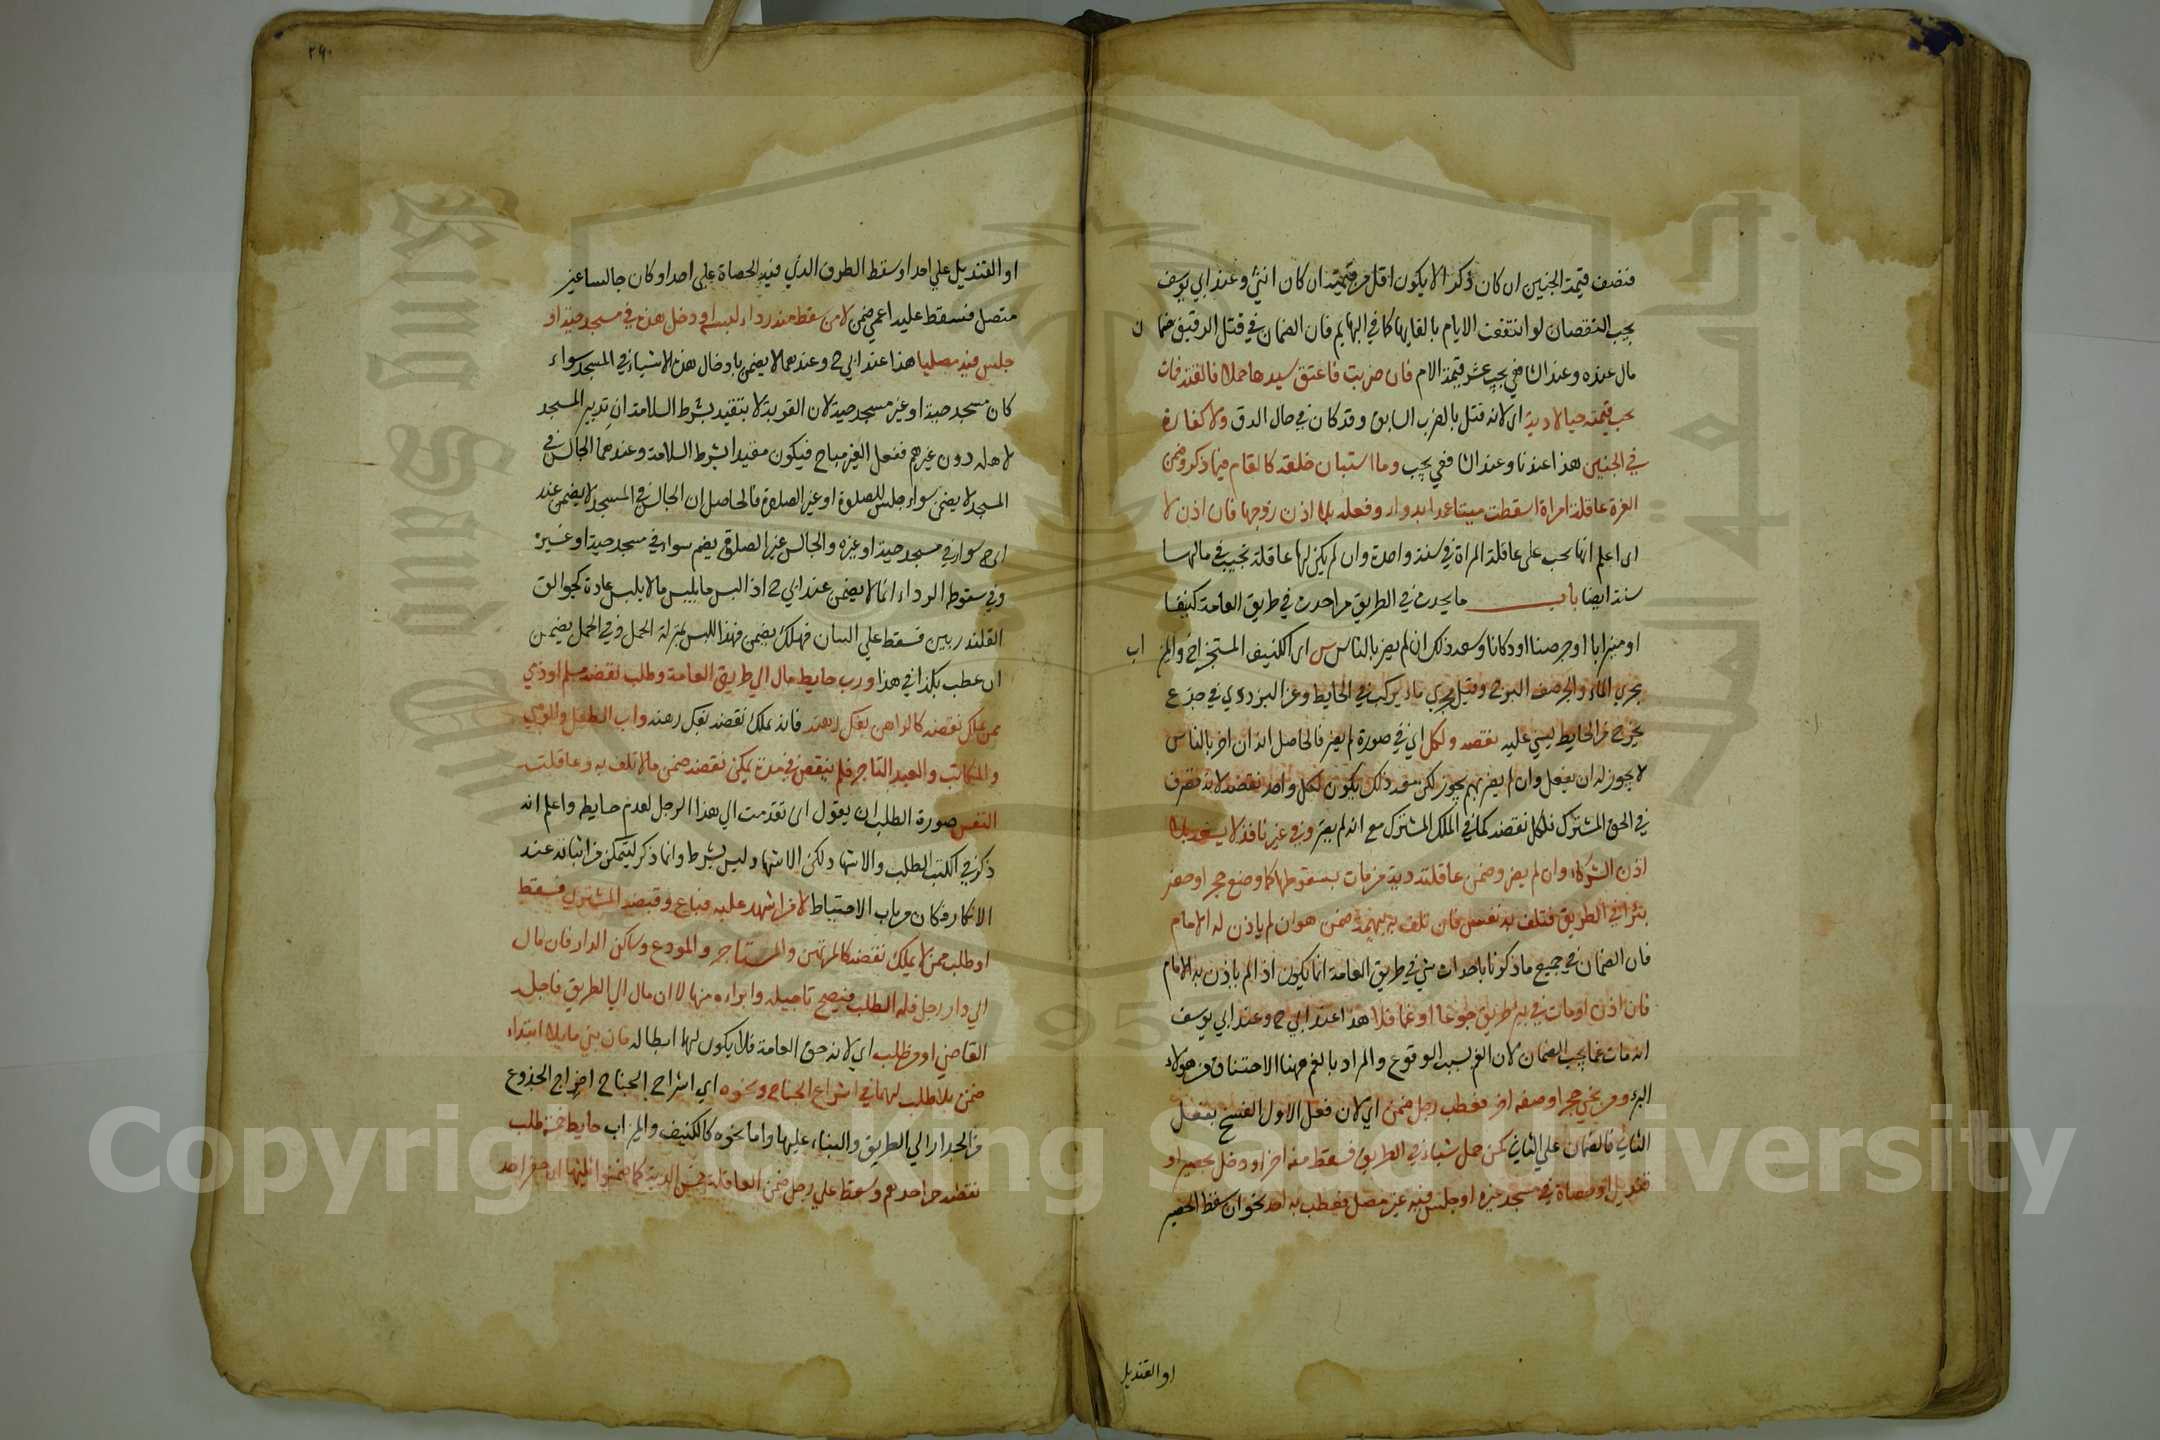 فنصف قيمة الجنين ان كان ذكرا لا يكون اقل من قيمته ان كان انثى وعند ابي يوسف
يجب النقصان لو انتقصت الام بالقايها كما في البهايم فان الضمان في قتل الرقيق ضمان
مال عنده وعند الشافعي يجب عشر قيمة الام فان ضربت فاعتق سيدها حملها فالقته فمات
يجب قيمته حيا لا ديته اى لانه قتل بالضرب السابق وقد كان في حال الرق ولا كفارة
في الجنين هذا عندنا وعند الشافعي يجب وما استبان خلقه كالتام فيما ذكر وضمن
الغرة عاقلة امراة اسقطت ميتا عمدا بدواء وفعله بلا اذن زوجها فان اذن لا
اى اعلم انها تجب على عاقلة المراة في سنة واحدة وان لم يكن لها عاقلة تجب في مالها
سنة ايضا باب ما يحدث في الطريق من احدث في طريق العامة كنيفا
او ميزابا او جرصنا او دكانا وسعه ذلك ان لم يضر بالناس س اى الكنيف المستخرج والميزاب
مجرى الماء والجرصن البرج وقيل مجرى ماء يركب في الحايط وعن البزدوي في جذع
يخرج من الحايط ليبني عليه نقضه ولكل اي في صورة لم يضر فالحاصل انه ان اضر بالناس
لا يجوز له ان يفعل وان لم يضر بهم يجوز لكن مع ذلك يكون لكل واحد نقضه لانه تصرف
في الحق المشترك فلكل نقضه كما في الملك المشترك مع انه لم يضر وفي غير نافذ لا يسعه بلا
اذن الشركاء وان لم يضر وضمن عاقلته دية من مات بسقوطها كما وضع حجر او حفر
بئرا في الطريق فتلف به نفس فان تلف به بهيمة ضمن هو ان لم ياذن له الامام
فان الضمان في جميع ما ذكرنا باحداث شي في طريق العامة انما يكون اذا لم ياذن به الامام
فان اذن او مات في بير طريق جوعا او غما فلا هذا عند ابي ح وعند ابي يوسف
ان مات غما يجب الضمان لان الغم بسبب الوقوع والمراد بالغم ههنا الاختناق من هواء
البير ومن نحى حجرا وضعه اخر فعطب رجل ضمن اي لان فعل الاول انفسخ بفعل
الثاني فالضمان على الثاني كمن حمل شيا في الطريق فسقط منه اخر او دخل بحصير او
قنديل او حصاة في مسجد غيره او جلس فيه غير مصل فعطب به احد نحو ان سقط الحصير
او القنديل
٢٩٠
او القنديل على احد او سقط الظرف الذي فيه الحصاة على احد او كان جالسا غير
متصل فسقط عليه اعمي ضمن لا من سقط منه رداء لبسه او دخل هذه في مسجد حيه او
جلس فيه مصليا هذا عند ابي ح وعندهما لا يضمن بادخال هذه الاشياء في المسجد سواء
كان مسجد حيه او غير مسجد حيه لان القربة لا يتقيد بشرط السلامة ان تدبير المسجد
لاهله دون غيرهم ففعل الغير مباح فيكون مقيدا بشرط السلامة وعندهما الجالس في
المسجد لا يضمن سواء جلس للصلوة او غير الصلوة فالحاصل ان الجالس في المسجد لا يضمن عند
ابي ح سواء في مسجد حيه او غيره والجالس غير الصلوة يضمن سواء في مسجد حيه او غيره
وفي سقوط الرداء انما لا يضمن عند ابي ح اذا لبس ما يلبس ما لا يلبس عادة كجوالق
القلندريين فسقط على انسان فهلك يضمن فهذا اللبس بمنزلة الحمل وفي الحمل يضمن
ان عطب بكذا في هذا ورب حايط مال الي طريق العامة وطلب نقضه مسلم او ذمي
ممن يملك نقضه كالراهن بفك رهنه فانه يملك نقضه بفك رهنه واب الطفل والوصي
والمكاتب والعبد التاجر فلم ينقض في مدة يمكن نقضه ضمن مالا تلف به وعاقلته
النفس صورة الطلب ان يقول اى تقدمت الي هذا الرجل لعدم حايط واعلم انه
ذكر في الكتب الطلب والاشهاد ولكن الاشهاد ليس بشرط وانما ذكر ليتمكن من اثباته عند
الانكار فكان من باب الاحتياط لا من اشهد عليه فباع وقبضه المشتري فسقط
او طلب ممن لا يملك نقضه كالمرتهن والمستاجر والمودع وساكن الدار فان مال
الي دار رجل فله الطلب فيصح تاجيله وابراءه منها لا ان مال الي الطريق فاجله
القاضي او من طلب اي لانه حق العامة فلا يكون لهما ابطاله فان بني مايلا ابتداء
ضمن بلا طلب كما في اشراع الجناح ونحوه اي اشراع الجناح اخراج الجذوع
من الجدار الي الطريق والبناء عليها واما نحوه كالكنيف والميزاب حايط خمسة طلب
نقضه من احدهم وسقط على رجل ضمن العاقلة خمس الدية كما ضمنوا ثلثيها ان حفر احد